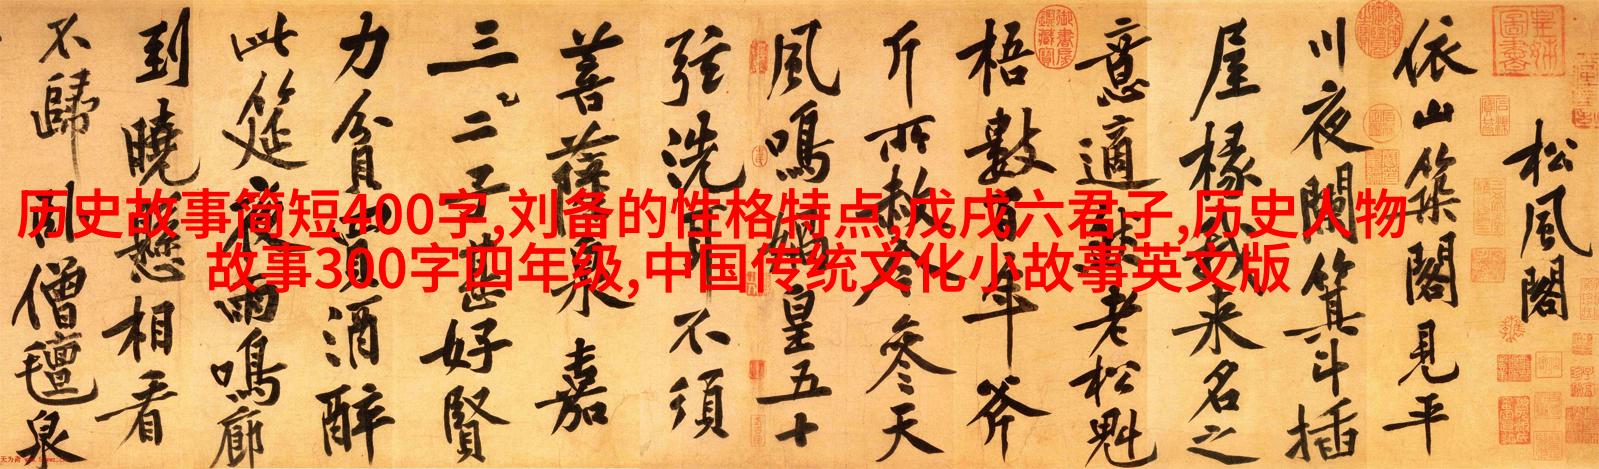 历史故事简短400字,刘备的性格特点,戊戌六君子,历史人物
故事300字四年级,中国传统文化小故事英文版
松風閣
依山築閣見平
川夜闌箕斗插
屋椽我來名之
意適然老松魁
梧數百年斧
斤所赦今參天
風鳴媧皇五十
弦洗耳不須
菩薩泉嘉
三二子甚好賢
力貧買酒醉
此筵夜雨鳴廊
到曉懸相看
不歸臥僧氈泉
皇姊圖書
御書房鑑藏寶